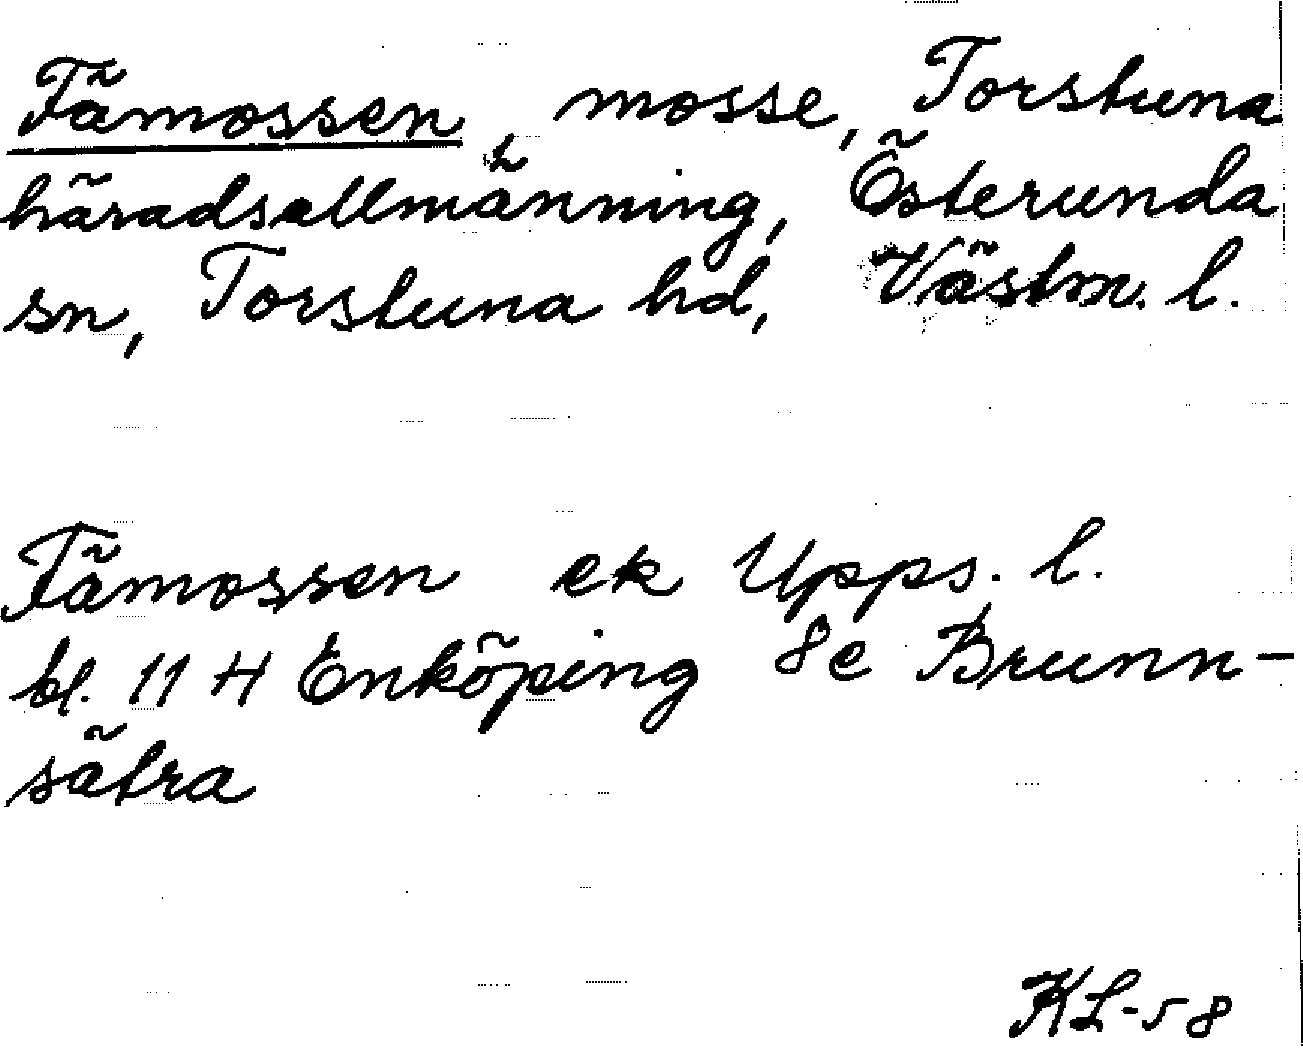 Fämossen, mosse, Torstuna
häradsallmänning, Österunda
sn, Torstuna hd, Västm. l.
Fämossen ek Upps. l.
bl. 11 H Enköping 8e Brunn-
sätra
KL-58